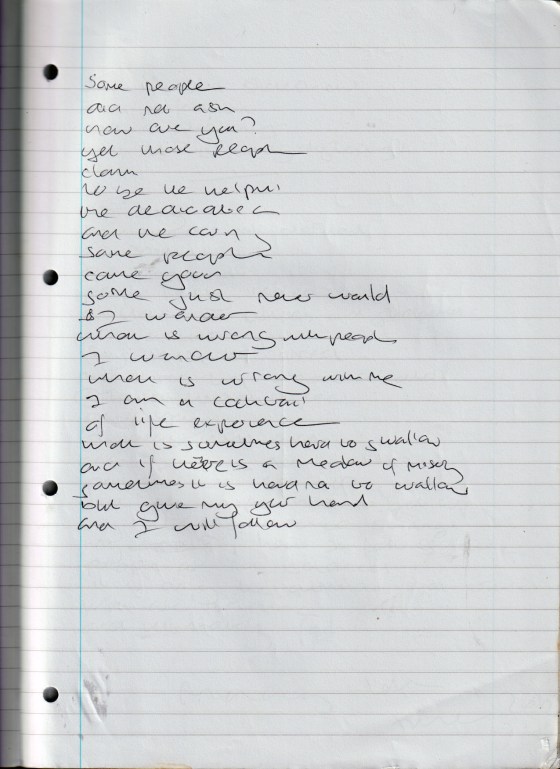 Some people
did not ask
how are you?
yet those people
claim
to be the helpful
the dedicated
and the caring
some people
came good
some just never would
I wonder
what is wrong with people
I wonder
what is wrong with me
I am a cocktail
of life experience
which is sometimes hard to swallow
and if there is a meadow of misery
sometimes it is hard not to wallow
but give my your hand
and I will follow